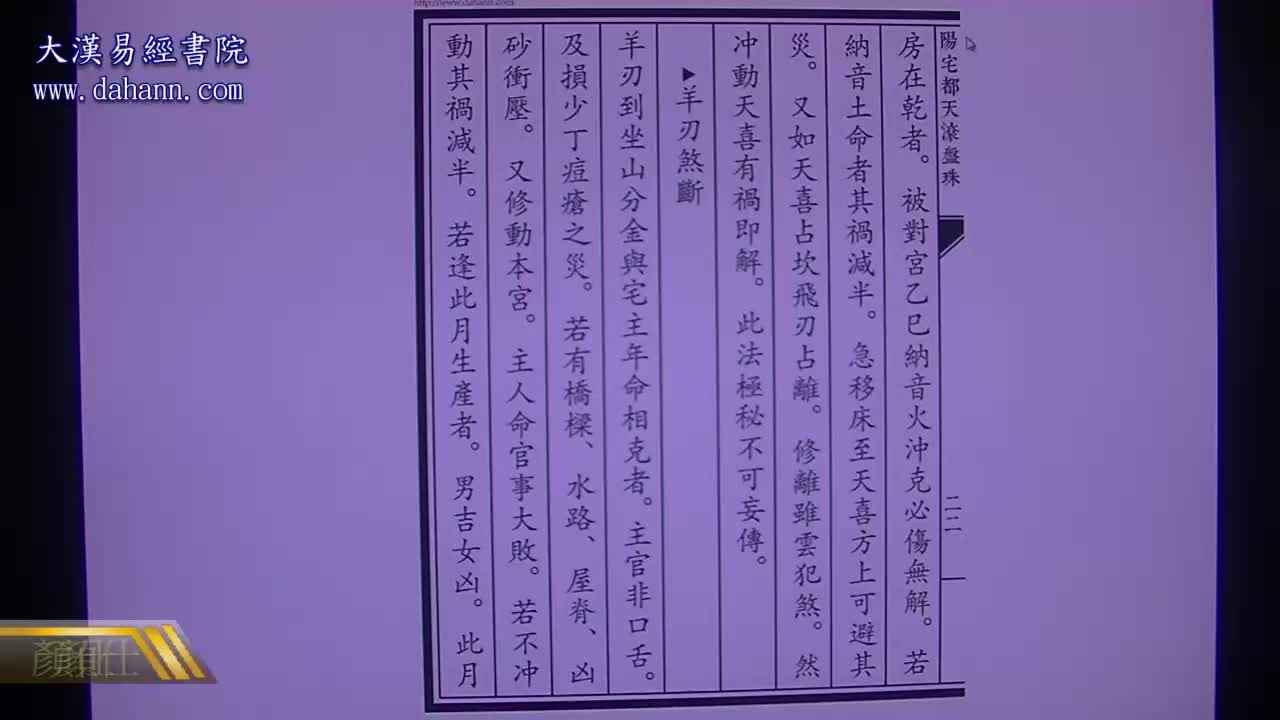 http://www.dahann.com
大漢易經書院
www.dahann.com
陽宅都天滾盤珠
二二
房在乾者。被對宮乙巳納音火沖克必傷無解。若
納音土命者其禍減半。急移床至天喜方上可避其
災。又如天喜占坎飛刃占離。修離雖雲犯煞。然
冲動天喜有禍即解。此法極秘不可妄傳。
▶羊刃煞斷
羊刃到坐山分金與宅主年命相克者。主官非口舌。
及損少丁痘瘡之災。若有橋樑、水路、屋脊、凶
砂衝壓。又修動本宮。主人命官事大敗。若不冲
動其禍減半。若逢此月生產者。男吉女凶。此月